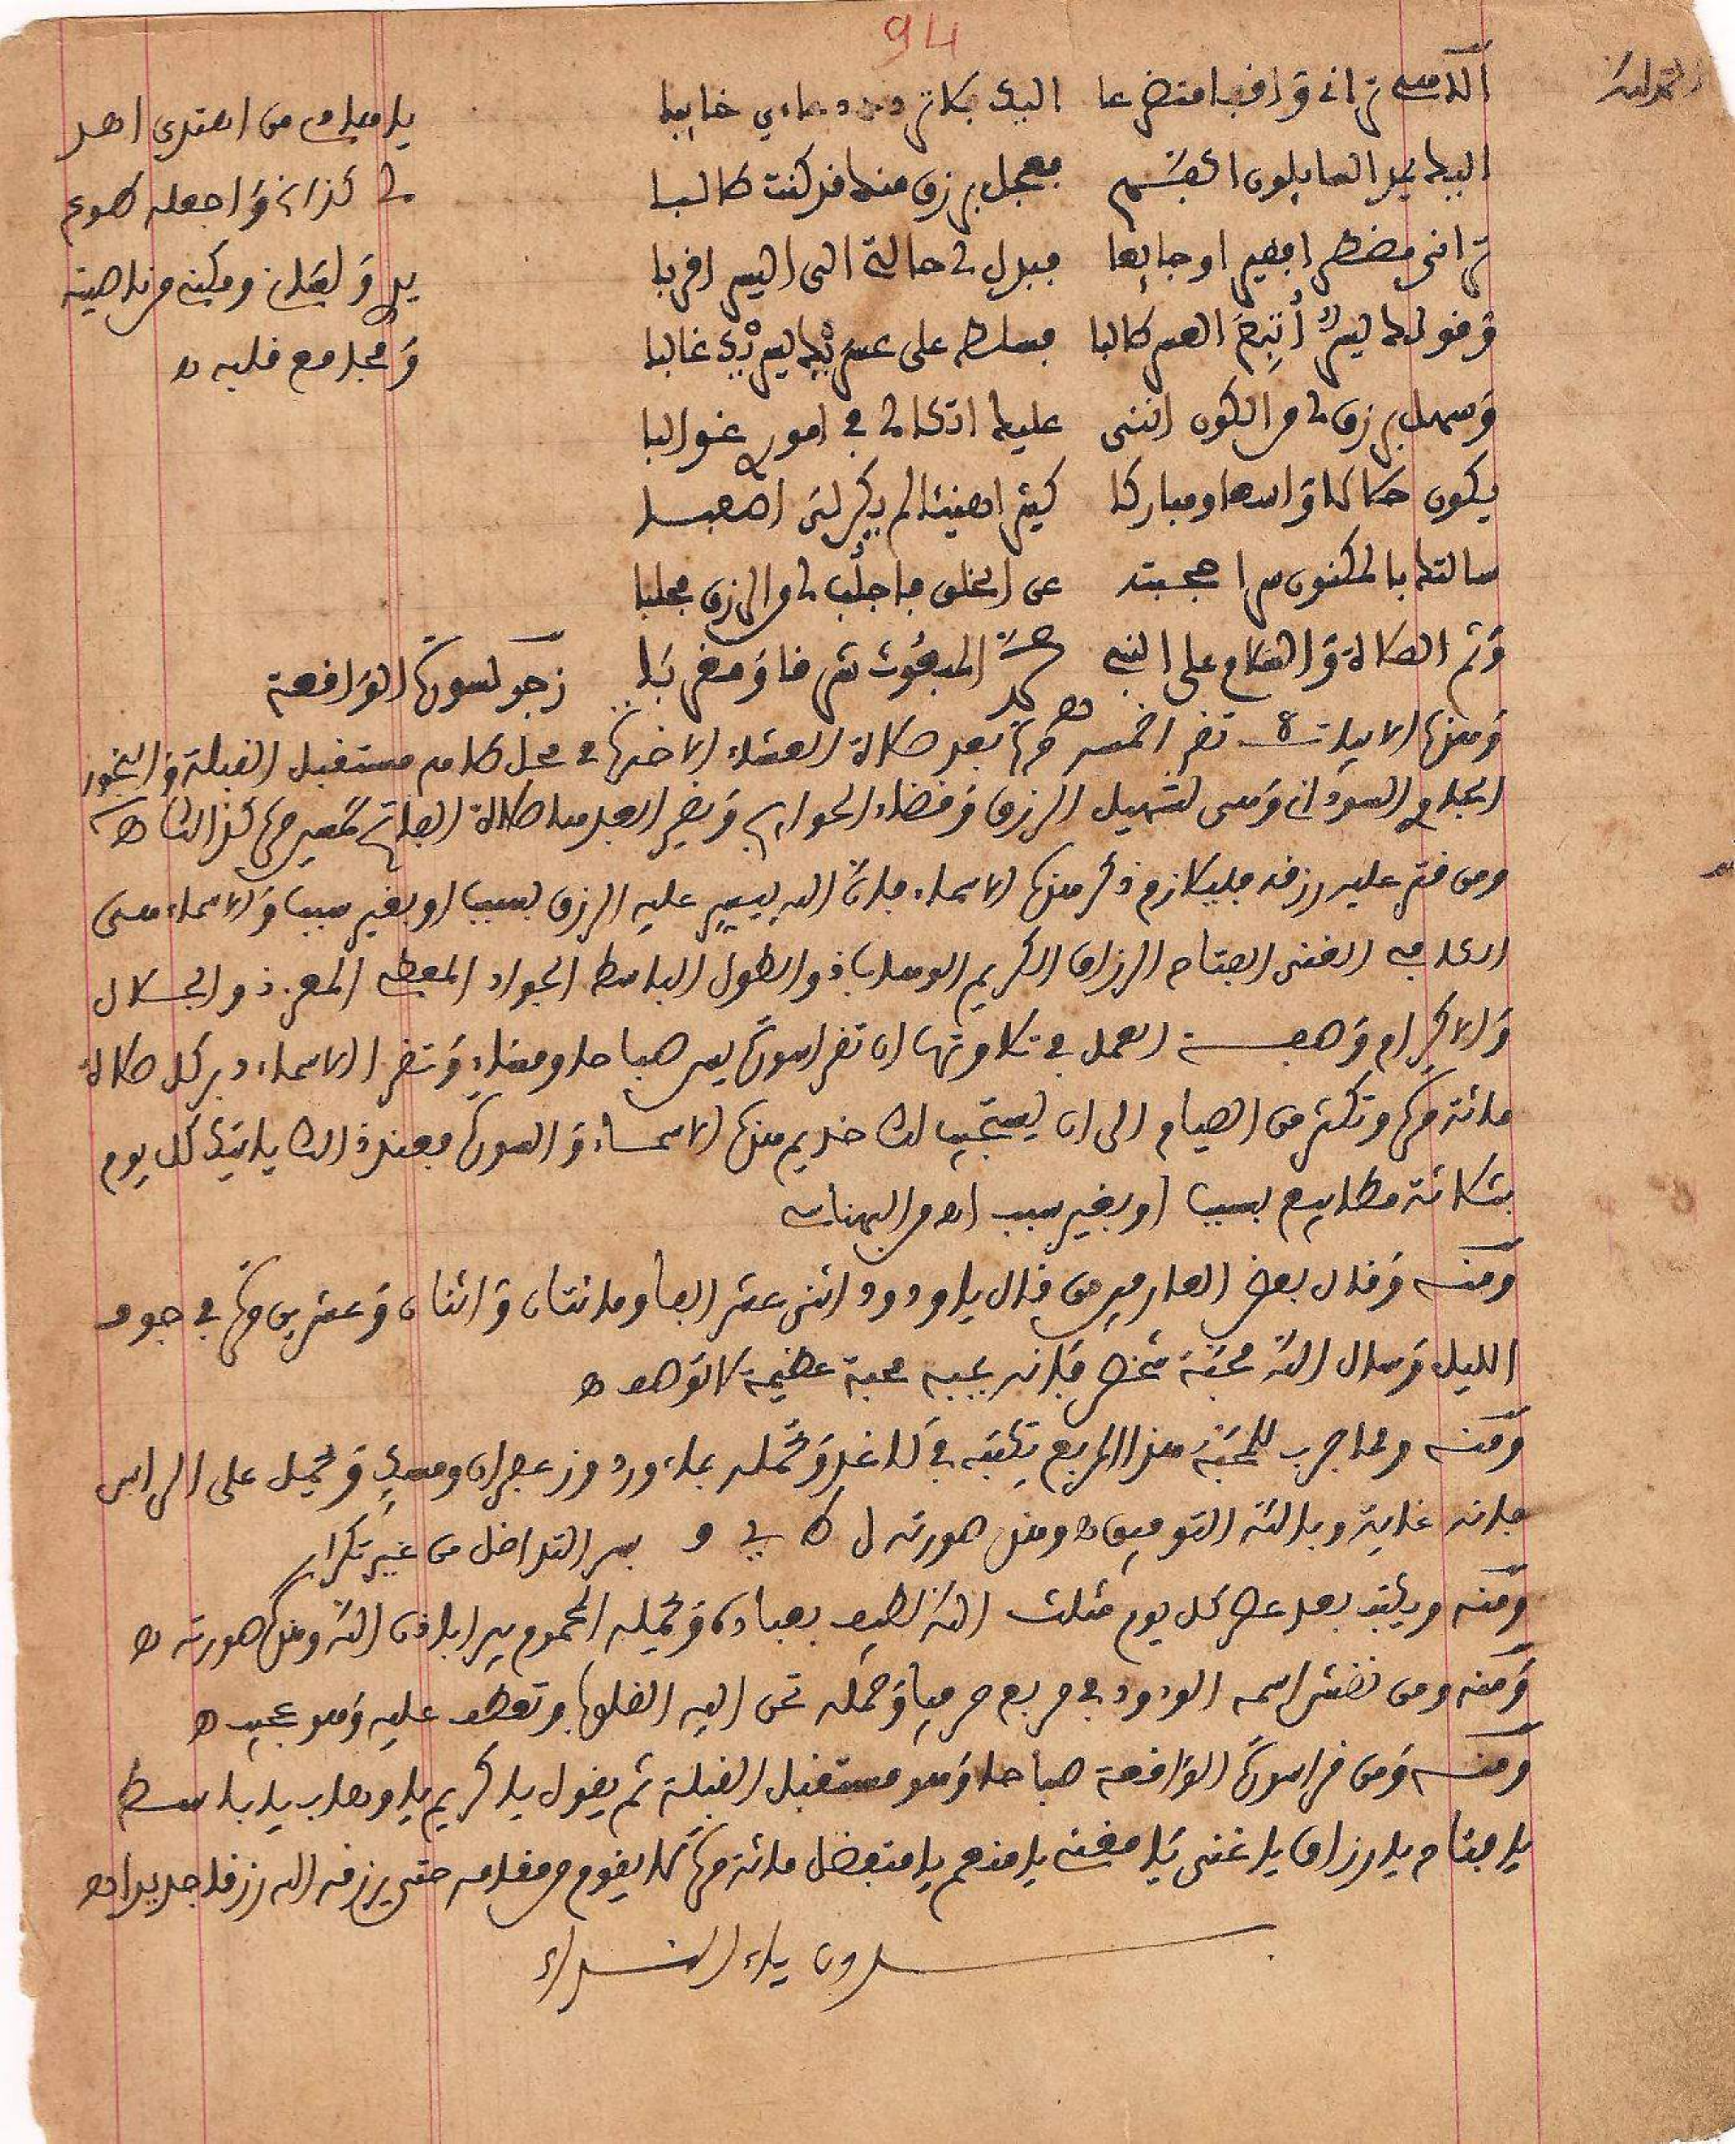 94
الحمد لله
الاهي تراني واقفا متضرعا اليك فلا تردد دعائي خائبا
اليك يمد السائلون اكفهم فعجل برزق منك قد كنت طالبا
تراني مضطرا فقيرا وجائعا فبدل لي حالتي الى اليسر اقربا
وقولك ليسرك أتبع العسر طالبا فسلط على عسري بك ليسري غالبا
وسهل برزق لي من الكون انني عليك اتكالي في امور غوالبا
يكون حلالا واسعا ومباركا كثيرا هنيئا لم يكن لي اصعبا
سالتك بالمكنون سرا حجبته عن الخلق فاجلب لي من الرزق مجلبا
وثم الصلاة والسلام على النبي محمد المبعوث شرقا ومغربا
زجر لسورة الواقعة
يا مبلي من اعتدى اهد
لي كذا وكذا واجعله طوع
يدي ولقلبي ومكنه من ناصيته
ومجامع قلبه ه
وهذه الابيات 8 تقرا خمسة مرة بعد صلاة العشاء الاخرة في محل طاهر مستقبل القبلة والبخور
الجاوي السوداني وهي لتسهيل الرزق وقضاء الحوايج وبخير العبد من صلاة الفاتح خمسين مرة كذالك ه
ومن قتر عليه رزقه فليلازم ذكر هذه الاسماء فان الله ييسر عليه الرزق بسبب او بغير سبب والاسماء هي
الكافي الغني الفتاح الرزاق الكريم الوهاب ذو الطول الباسط الجواد المعطي المعز ذو الجلال
والاكرام وصفة العمل في تلاوتها ان تقرا سورة يس صباحا ومساء وتقرا الاسماء دبر كل صلاة
مائة مرة وتكثر من الصيام الى ان يستجيب لك خديم هذه الاسماء والسورة فعند ذالك ياتيك كل يوم
بثلاثة مطابيع بسبب او بغير سبب اه من البهناسي
ومنه وقال بعض العارفين من قال يا ودود اثني عشر الفا ومائتان واثنان وعشرين مرة في جوف
الليل وسال الله محبة شخص فانه يحبه محبة عظيمة لا توصف ه
ومنه ومما جرب للمحبة هذا المربع تكتبه في كاغد وتحمله بماء ورد وزعفران ومسك وتحمل على الراس
فانه غاية وبالله التوفيق ه وهذه صورته ل ط ي ف بسر التداخل من غير تكرار
ومنه ويكتب بعد عصر كل يوم مثلث الله لطيف بعباده وتحمله المحموم يبرا باذن الله وهذه صورته ه
ومنه ومن نقش اسمه الودود في مربع حرفيا وحمله تحن اليه القلوب وتعطف عليه وهو عجيب ه
ومنه ومن قرا سورة الواقعة صباحا وهو مستقبل القبلة ثم يقول يا كريم يا وهاب يا باسط
يا فتاح يا رزاق يا غني يا مغني يا منعم يا متفضل مائة مرة لا يقوم من مقامه حتى يرزقه الله رزقا جديدا اه
بدون ياء النداء